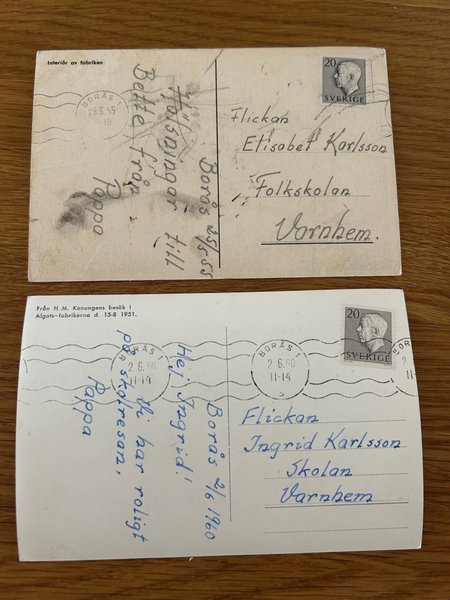 Interiör av fabriken
BORÅS 1
Borås 25/5 55
Hälsningar till
Bette från
Pappa
20
SVERIGE
Flickan
Elisabet Karlsson
Folkskolan
Varnhem.
Från H. M. Konungens besök i
Algots-fabrikerna d. 15-8 1951.
BORÅS 1
2.6.60
11-14
BORÅS 1
2.6.60
11-14
Borås 2/6 1960
Hej Ingrid!
har roligt
på skolresan,
Pappa
20
SVERIGE
Flickan
Ingrid Karlsson
Skolan
Varnhem